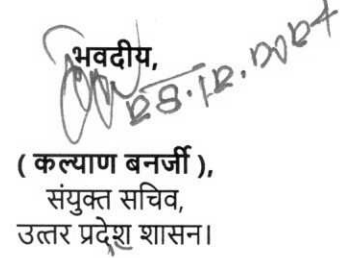 भवदीय,
28.12.2024
( कल्याण बनर्जी ),
संयुक्त सचिव,
उत्तर प्रदेश शासन।